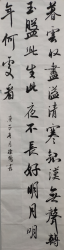 暮雲收盡溢清寒銀漢無聲轉
玉盤此生此夜不長好明月明
年何處看